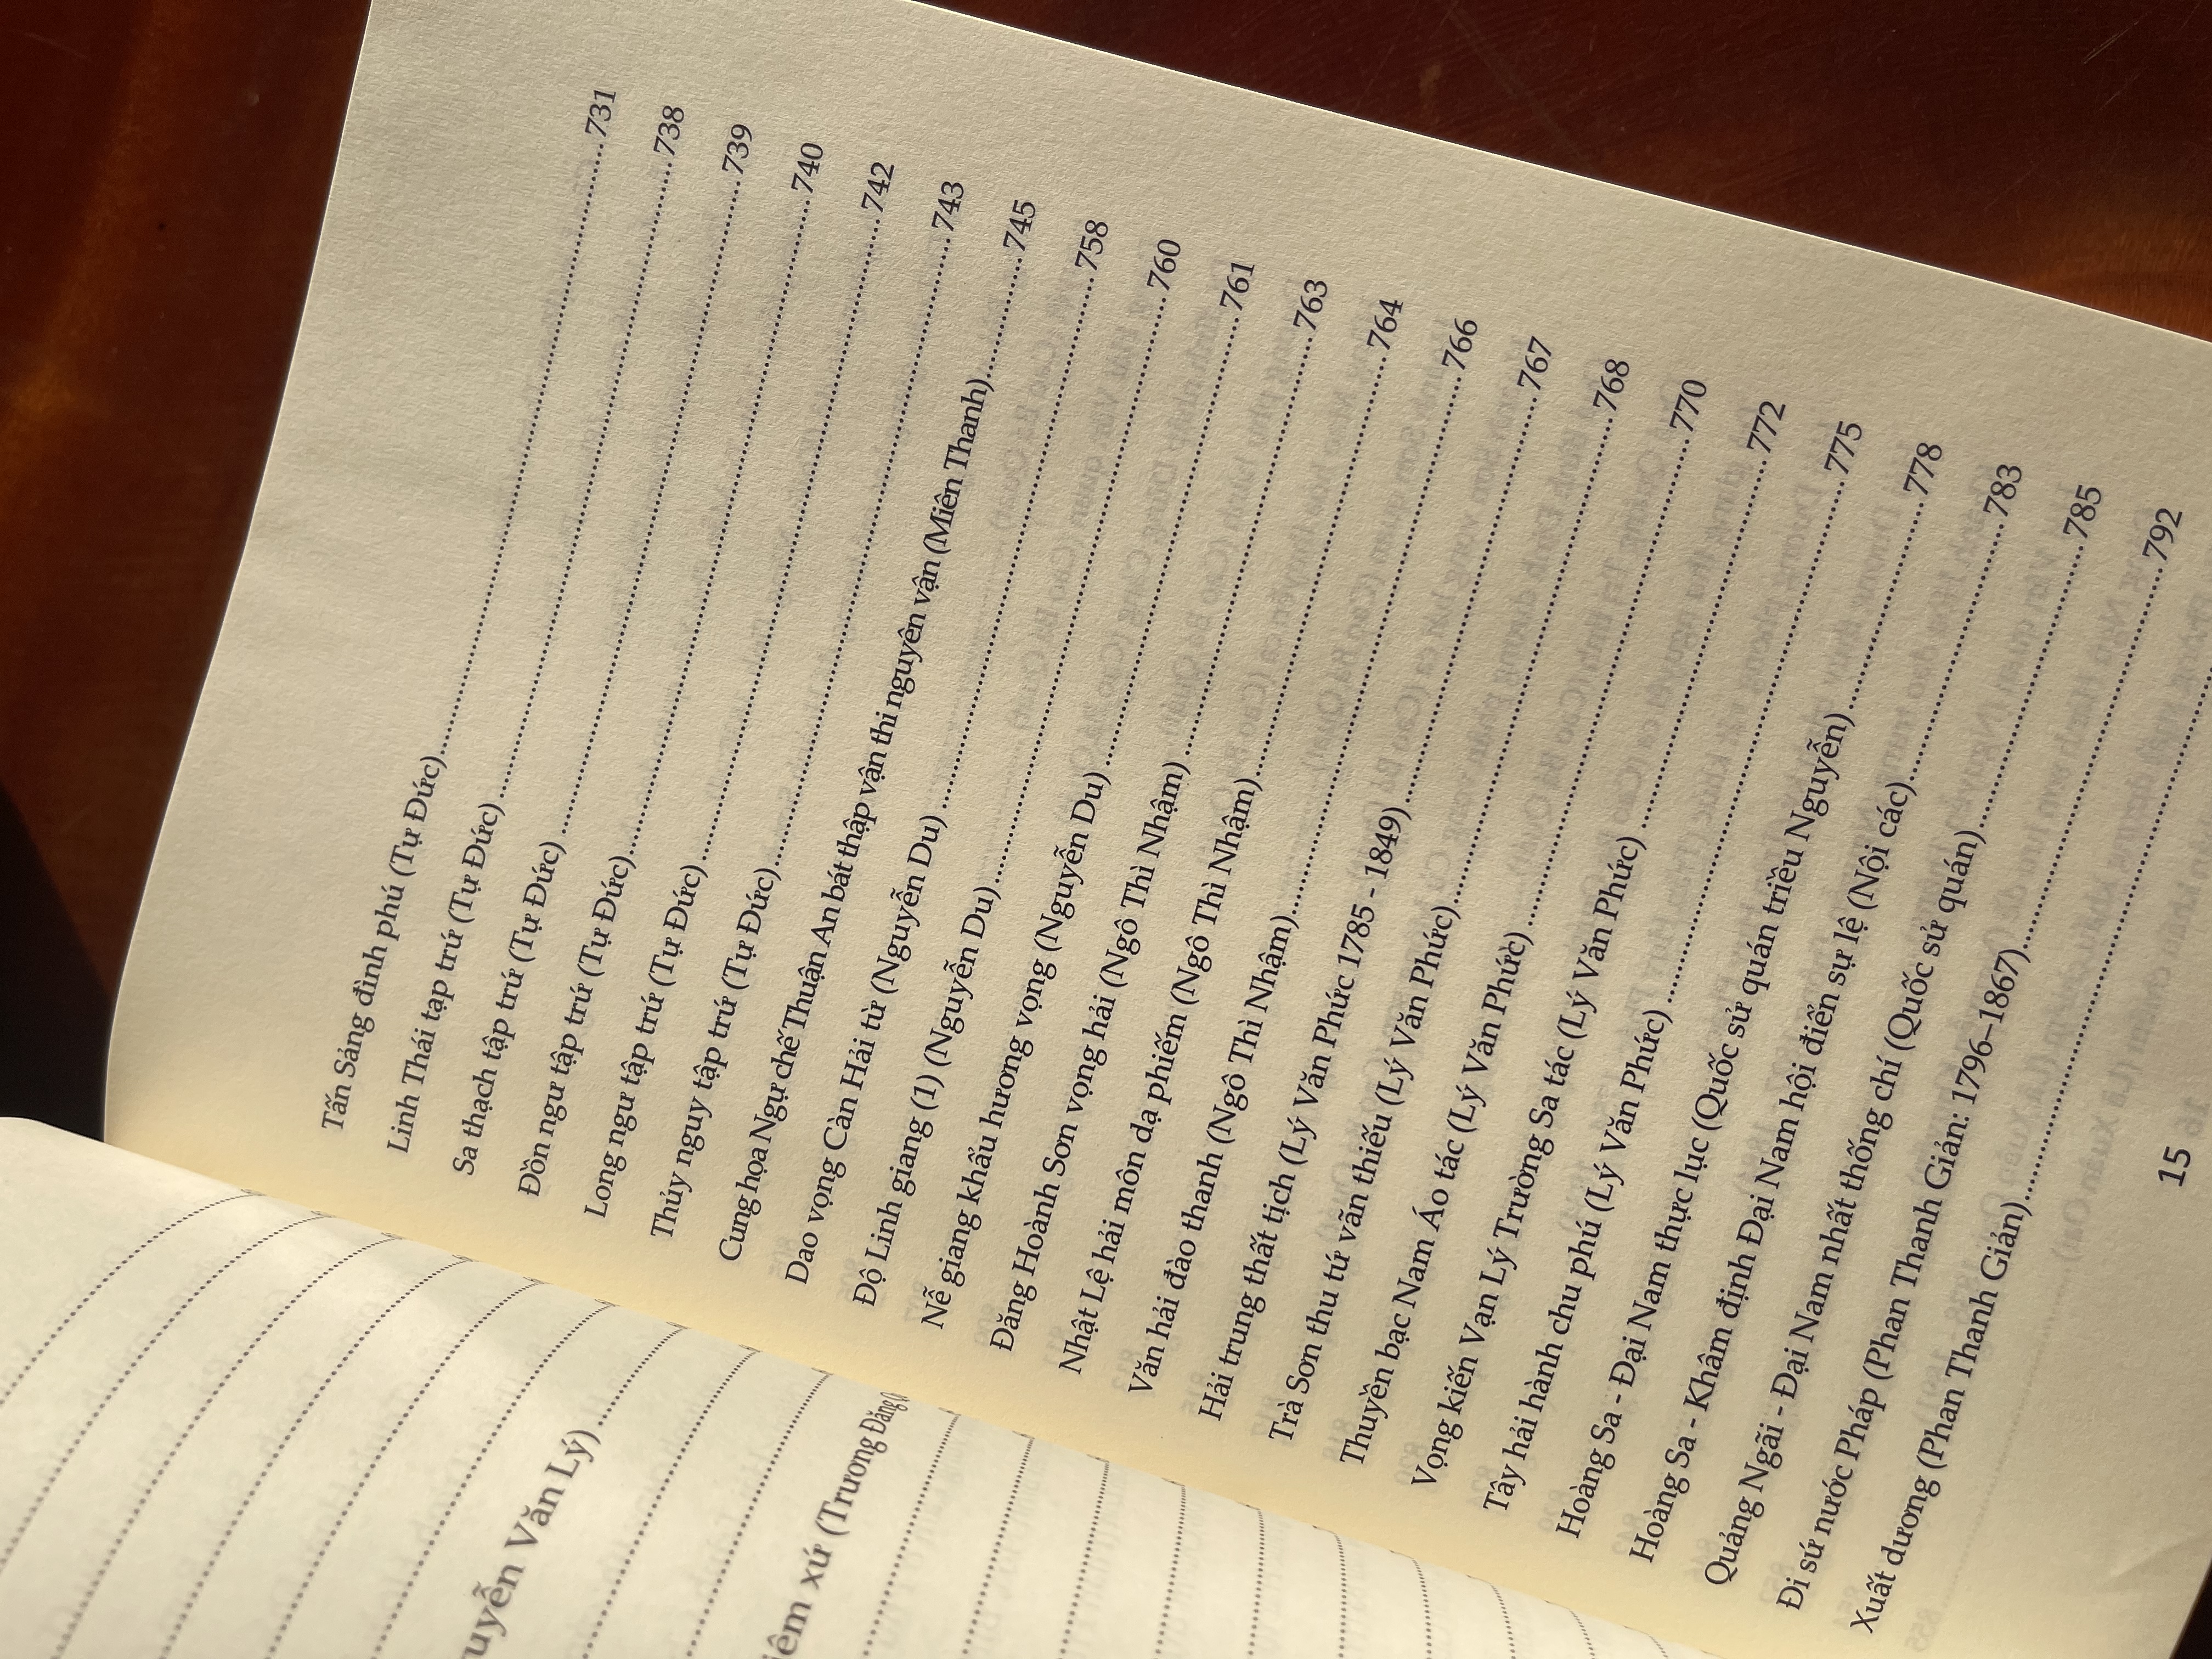 Tấn Sảng đình phú (Tự Đức)..........731
Linh Thái tạp trứ (Tự Đức)..........738
Sa thạch tập trứ (Tự Đức)..........739
Đồn ngư tập trứ (Tự Đức)..........740
Long ngư tập trứ (Tự Đức)..........742
Thủy nguy tập trứ (Tự Đức)..........743
Cung họa Ngự chế Thuận An bát thập vận thi nguyên vận (Miên Thanh)..........745
Dao vọng Càn Hải từ (Nguyễn Du)..........758
Độ Linh giang (1) (Nguyễn Du)..........760
Nễ giang khẩu hương vọng (Nguyễn Du)..........761
Đăng Hoành Sơn vọng hải (Ngô Thì Nhậm)..........763
Nhật Lệ hải môn dạ phiếm (Ngô Thì Nhậm)..........764
Văn hải đào thanh (Ngô Thì Nhậm)..........766
Hải trung thất tịch (Lý Văn Phức 1785 - 1849)..........767
Trà Sơn thu tứ vãn thiếu (Lý Văn Phức)..........768
Thuyền bạc Nam Áo tác (Lý Văn Phức)..........770
Vọng kiến Vạn Lý Trường Sa tác (Lý Văn Phức)..........772
Tây hải hành chu phú (Lý Văn Phức)..........775
Hoàng Sa - Đại Nam thực lục (Quốc sử quán triều Nguyễn)..........778
Hoàng Sa - Khâm định Đại Nam hội điển sự lệ (Nội các)..........783
Quảng Ngãi - Đại Nam nhất thống chí (Quốc sử quán)..........785
Đi sứ nước Pháp (Phan Thanh Giản: 1796–1867)..........792
Xuất dương (Phan Thanh Giản)..........
15
uyễn Văn Lý)..........
iêm xứ (Trương Đăng